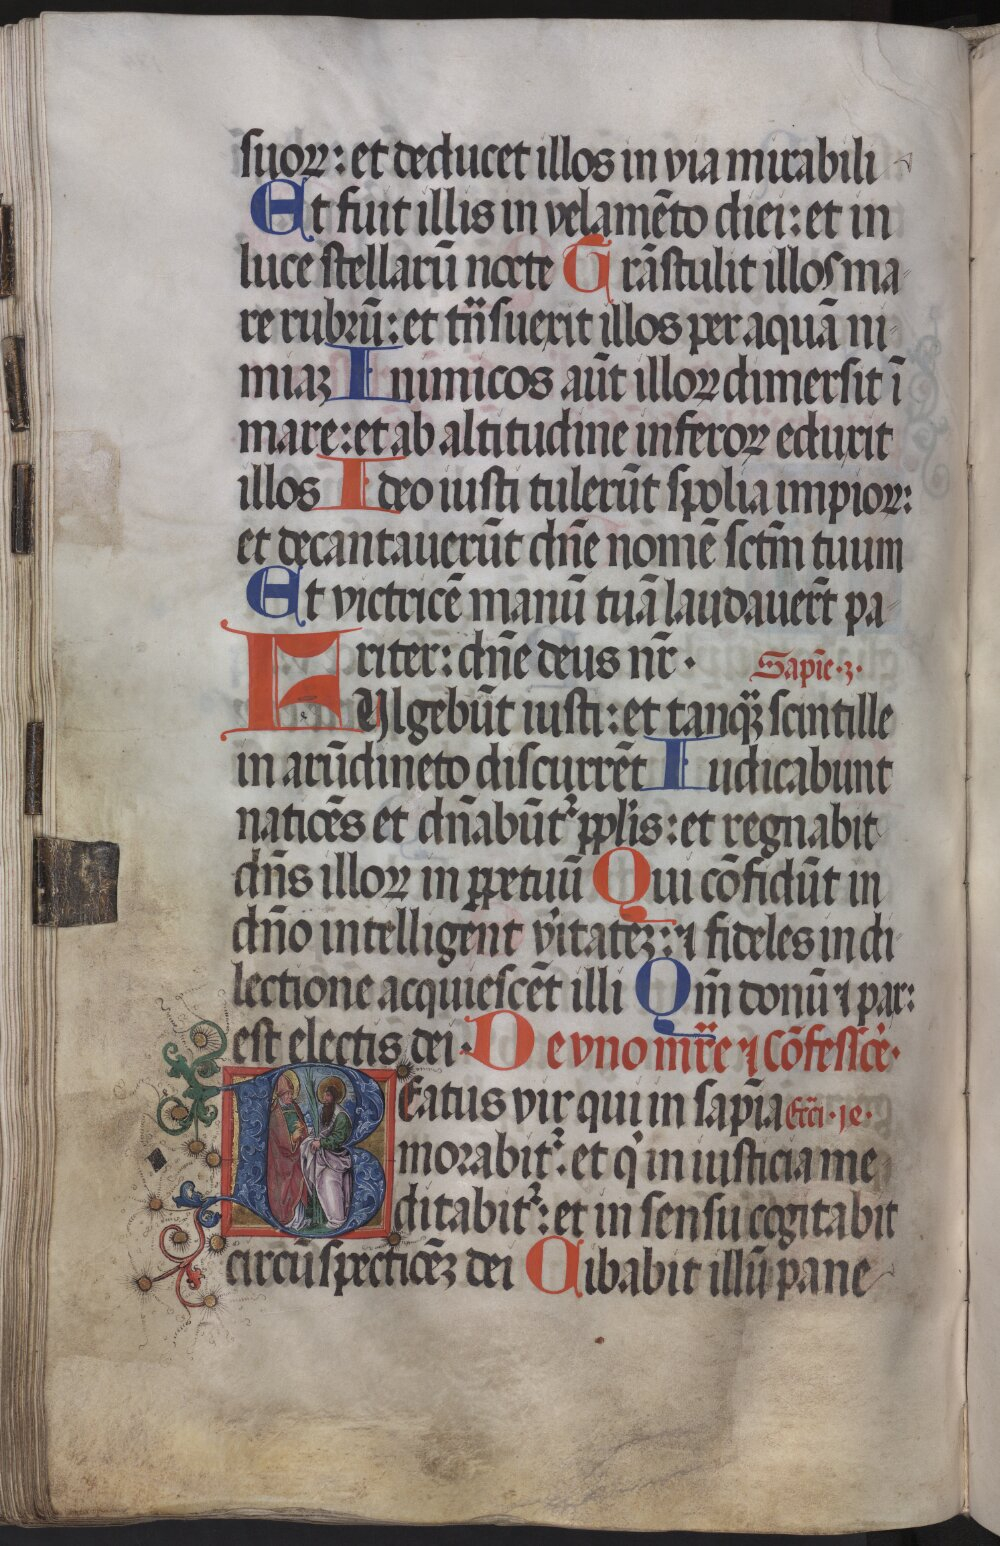 suoꝝ: et deducet illos in via mirabili
Et fuit illis in velamēto diei: et in
luce stellarū nocte Trāstulit illos ma
re rubrū: et trāsuexit illos per aquā ni
miaꝫ Inimicos aūt illoꝝ dimersit ī
mare: et ab altitudine inferoꝝ eduxit
illos Ideo iusti tulerūt spolia impioꝝ:
et decantauerūt dn̄e nomē sctm̄ tuum
Et victricē manū tuā laudauer̄t pa
riter: dn̄e deus nr̄.
Sapīe .3.
Fulgebūt iusti: et tanqꝫ scintille
in arūdineto discurrēt Iudicabunt
natiōes et dn̄abūtᷣ ppl̓is: et regnabit
dn̄s illoꝝ in ꝑpetuū Qui cōfidūt in
dn̄o intelligent v̓itateꝫ: ⁊ fideles in di
lectione acquiescēt illi Qm̄ donū ⁊ par:
est electis dei.
De vno mr̄e ⁊ Cōfessōe.
Beatus vir qui in sapīa
Ecc̄i .ie.
morabitᷣ: et q̓ in iusticia me
ditabitᷣ: et in sensu cogitabit
circūspectiōeꝫ dei Cibabit illū pane